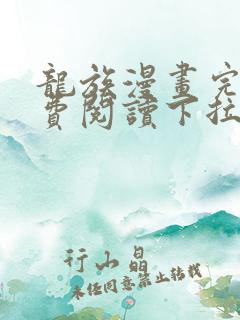 龍族漫畫完
費閱讀下拉
行山晶
未经同意禁止转载